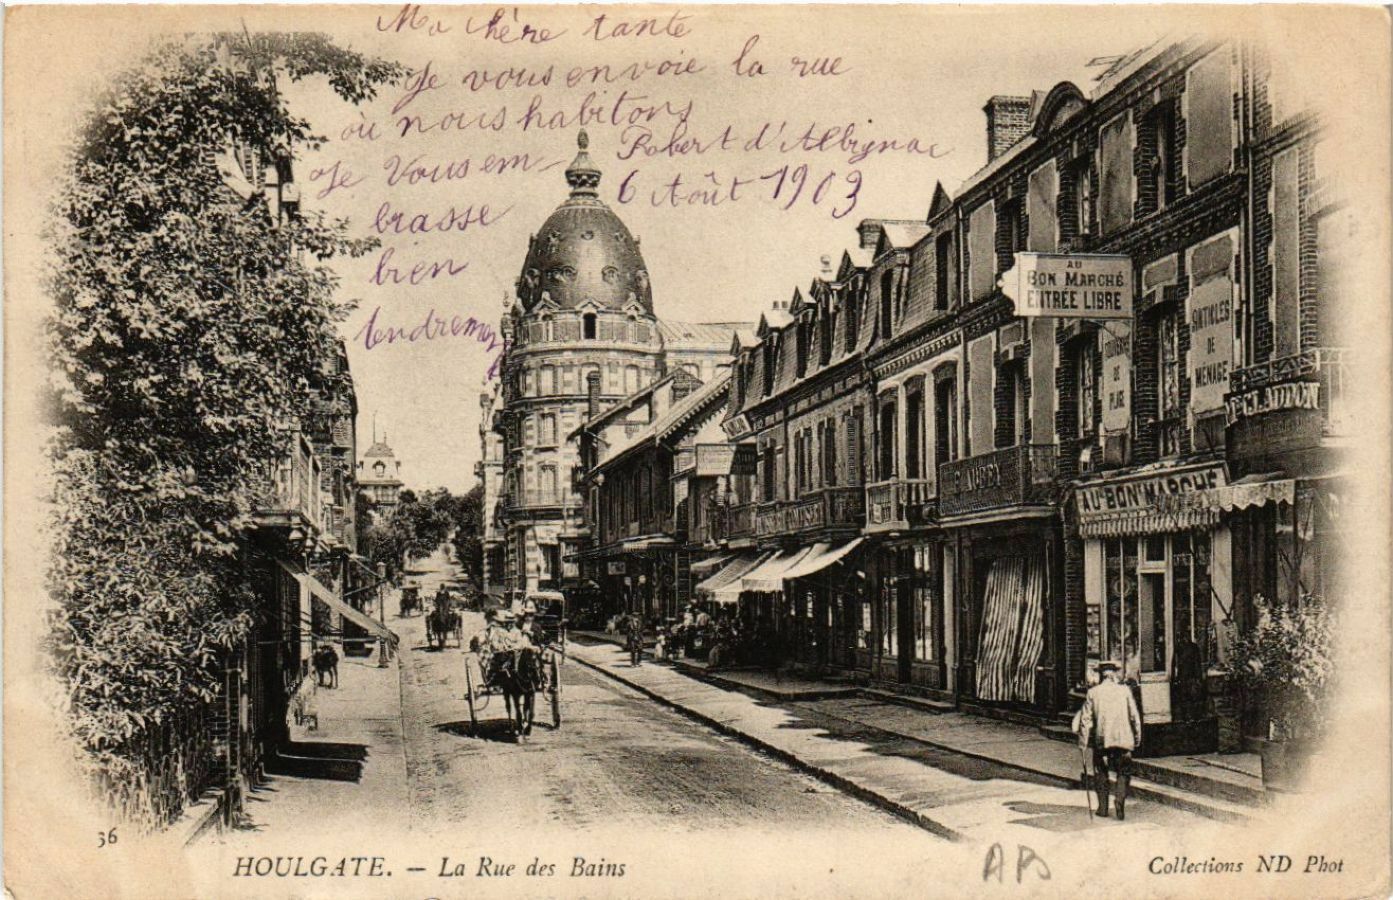 Ma chère tante
Je vous envoie la rue
où nous habitons
Je vous em-
brasse
bien
tendrement
Robert d'Albignac
6 Août 1903
AU
BON MARCHÉ
ENTRÉE LIBRE
ARTICLES
DE
MENAGE
DE
GLADDON
AU BON MARCHE
36
HOULGATE. - La Rue des Bains
AB
Collections ND Phot